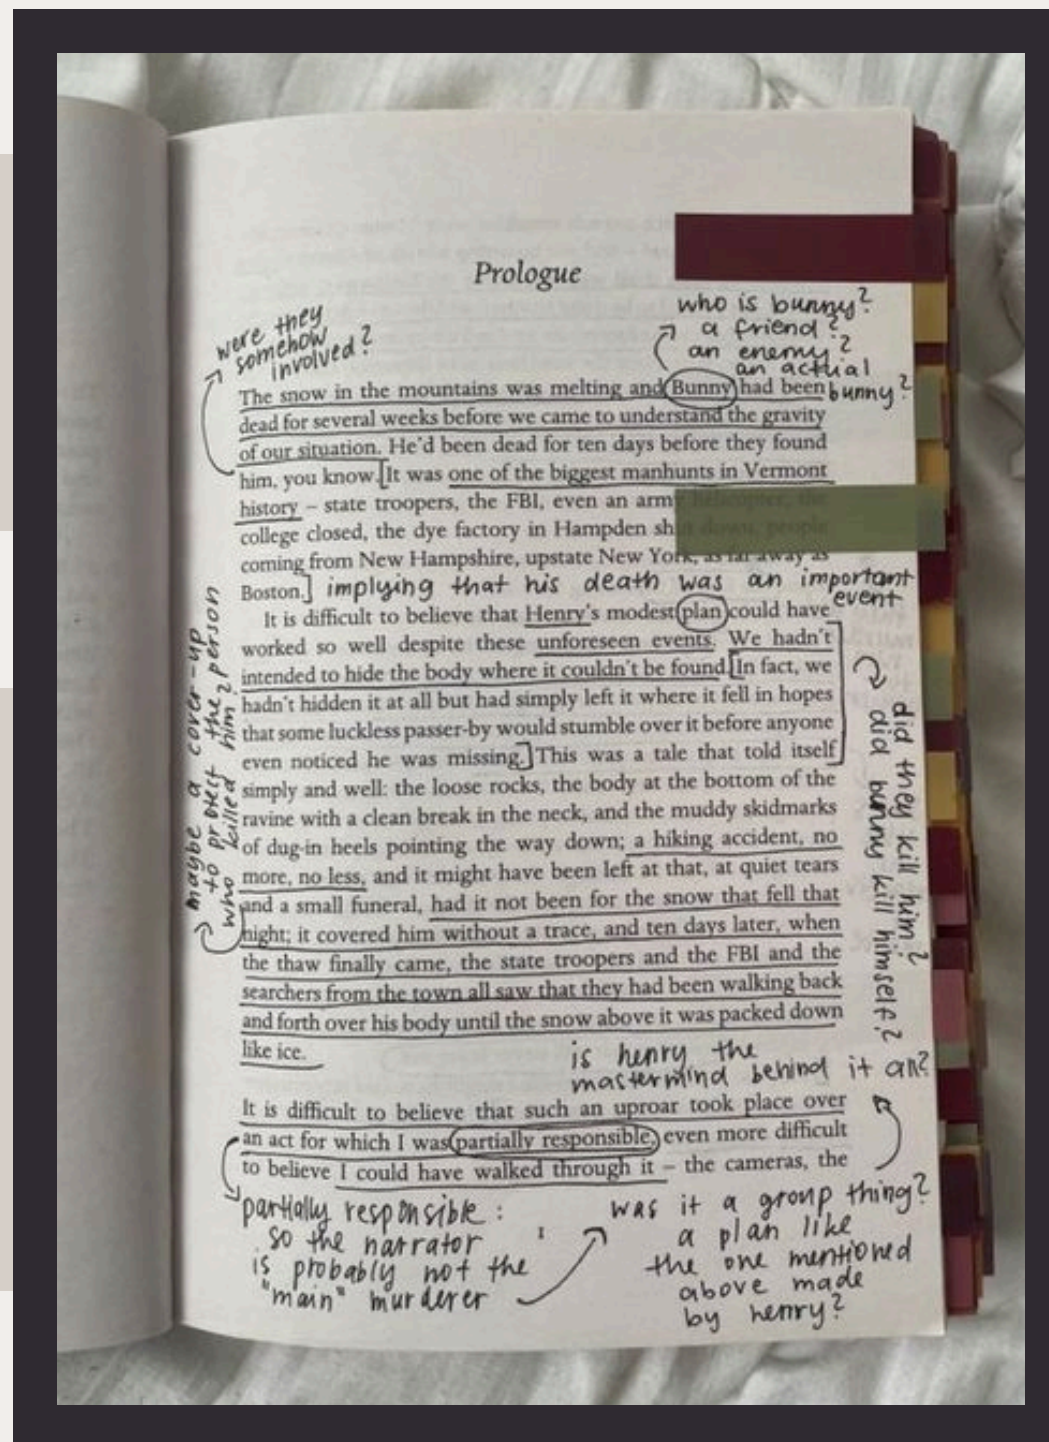 Prologue
were they
somehow
involved?
who is bunny?
a friend?
an enemy?
an actual
bunny?
The snow in the mountains was melting and Bunny had been
dead for several weeks before we came to understand the gravity
of our situation. He'd been dead for ten days before they found
him, you know. [It was one of the biggest manhunts in Vermont
history – state troopers, the FBI, even an army helicopter, the
college closed, the dye factory in Hampden shut down, people
coming from New Hampshire, upstate New York, as far away as
Boston.] implying that his death was an important
event
It is difficult to believe that Henry's modest plan could have
worked so well despite these unforeseen events. We hadn't
intended to hide the body where it couldn't be found. [In fact, we
hadn't hidden it at all but had simply left it where it fell in hopes
that some luckless passer-by would stumble over it before anyone
even noticed he was missing.] This was a tale that told itself
simply and well: the loose rocks, the body at the bottom of the
ravine with a clean break in the neck, and the muddy skidmarks
of dug-in heels pointing the way down; a hiking accident, no
more, no less, and it might have been left at that, at quiet tears
and a small funeral, had it not been for the snow that fell that
night; it covered him without a trace, and ten days later, when
the thaw finally came, the state troopers and the FBI and the
searchers from the town all saw that they had been walking back
and forth over his body until the snow above it was packed down
like ice.
maybe a cover-up
to protect the person
who killed him?
did they kill him?
did bunny kill himself?
is henry the
mastermind behind it all?
It is difficult to believe that such an uproar took place over
an act for which I was partially responsible, even more difficult
to believe I could have walked through it – the cameras, the
partially responsible:
so the narrator
is probably not the
"main" murderer
was it a group thing?
a plan like
the one mentioned
above made
by henry?